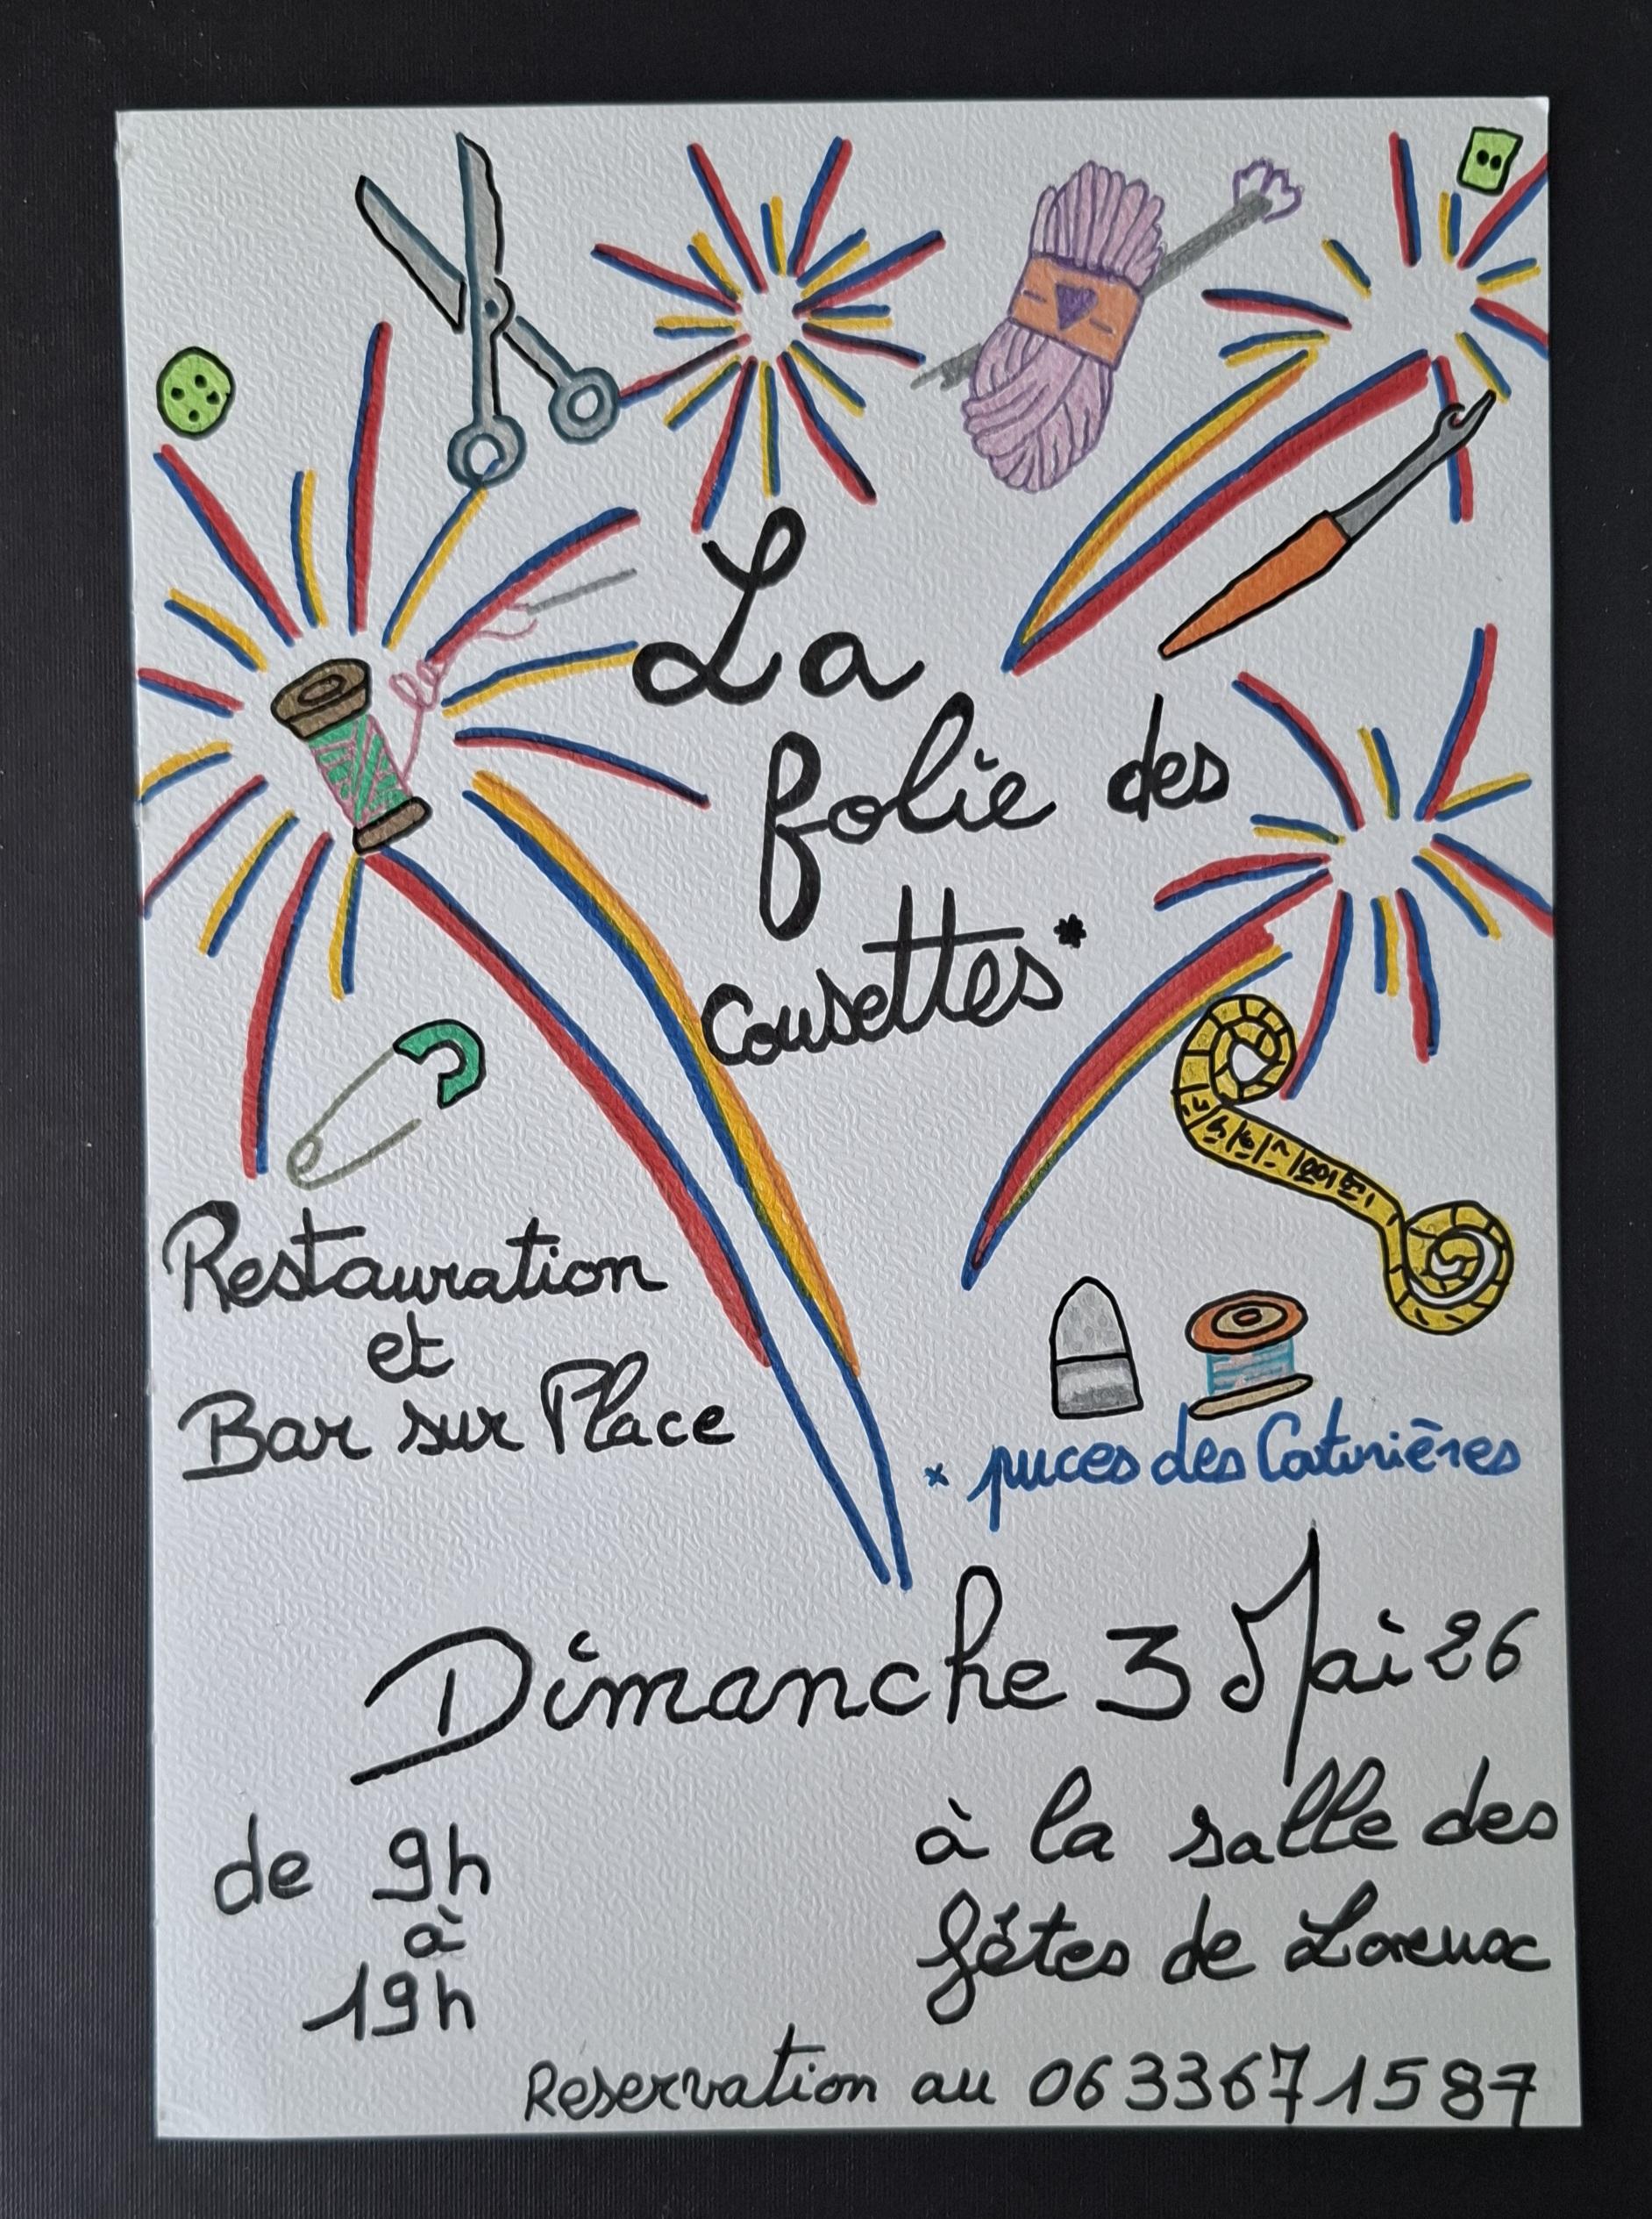 La
folie des
Cousettes*
Restauration
et
Bar sur Place
* puces des Couturières
Dimanche 3 Mai 26
de 9h
à
19h
à la salle des
fêtes de Lorenac
Reservation au 0633671587